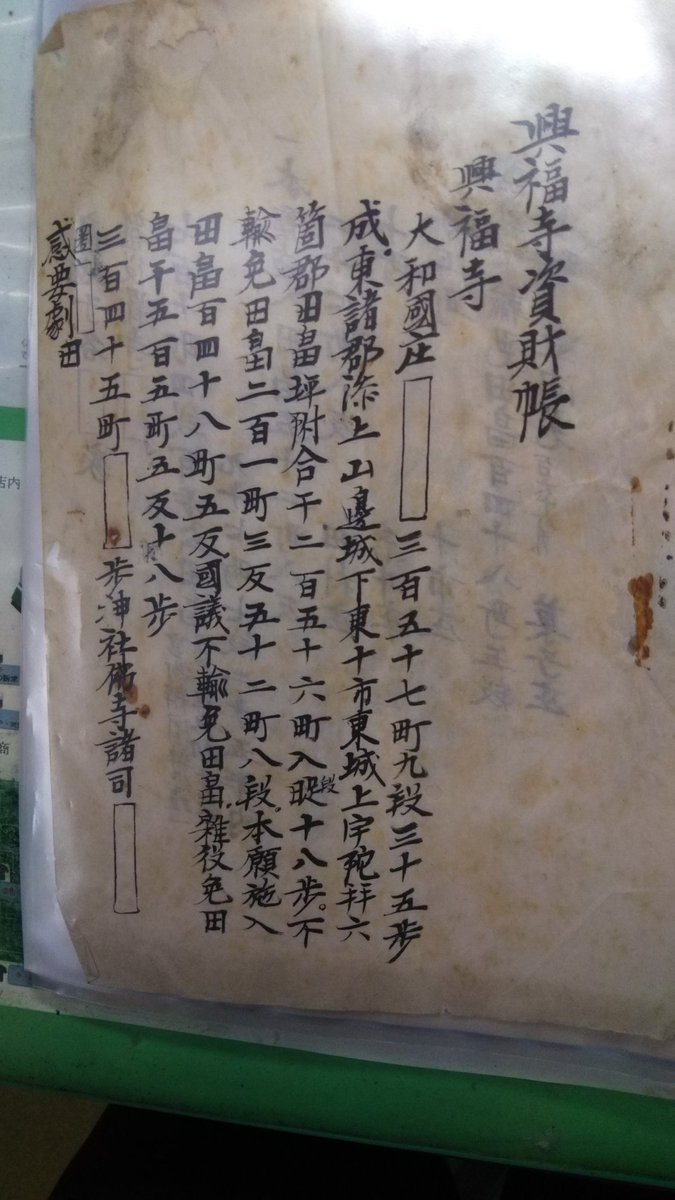 興福寺資財帳
興福寺
大和國庄 三百五十七町九段三十五步
成。東諸郡添上山邊城下東十市東城上宇陀幷六
箇郡田畠坪附合千二百五十六町入段十八歩。不
輸免田畠二百一町三反五十二町八段。本願施入
田畠百四十八町五反國議不輸免田畠。雜役免田
畠千五百五町五反十八步
三百四十五町 步神社佛寺諸司
園
感要劇田
店内
商